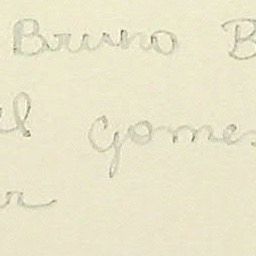 Bruno B
el Gomes
r